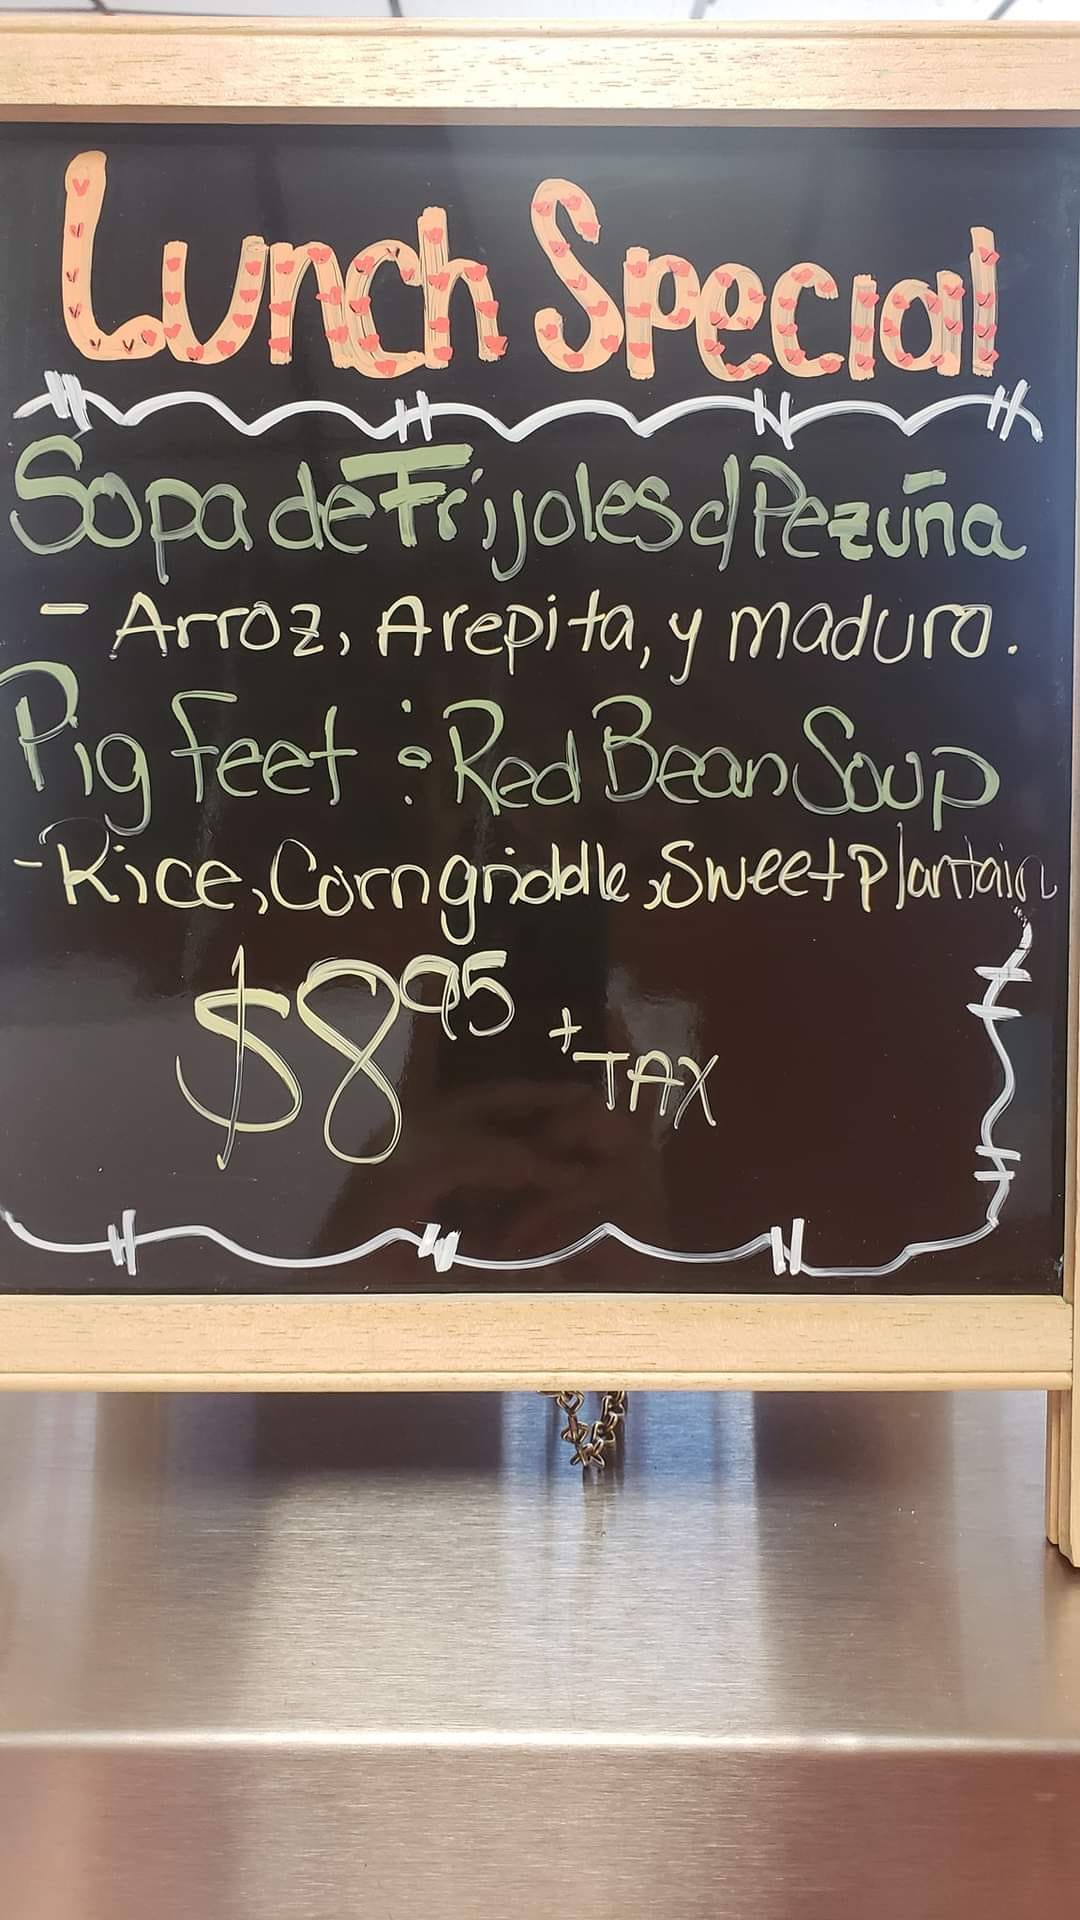 Lunch Special
Sopa de Frijoles d Pezuña
- Arroz, Arepita, y maduro.
Pig feet : Red Bean Soup
- Rice, Corn griddle, Sweet Plantain
$8.95 + TAX